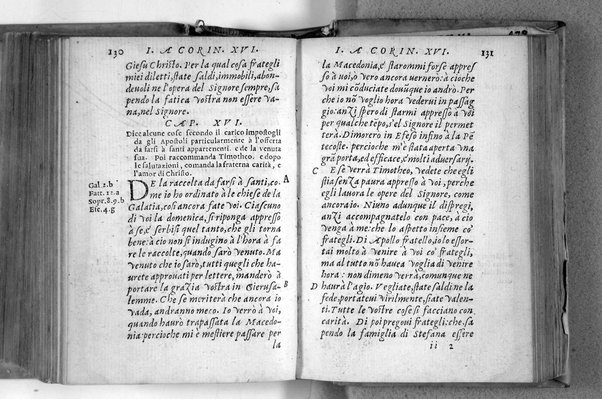 130 I. A CORIN. XVI.
Giesu Christo. Per la qual cosa frategli
miei diletti, state saldi, immobili, abon-
devoli ne l'opera del Signore sempre, sa
pendo la fatica vostra non essere va-
na, nel Signore.
CAP. XVI.
Dice alcune cose secondo il carico impostogli
da gli Apostoli particularmente à l'offerta
da farsi à santi appartenenti, e de la venuta
sua. Poi raccommanda Timotheo, e dopo
le salutazioni, comanda la fraterna carità, e
l'amor di Christo.
Gal. 2. b
Fatt. 11. a
Sopr. 8. 9. b
Efe. 4. g
DE la raccolta da farsi à santi, co- A
me io ho ordinato à le chiese de la
Galatia, cosi ancora fate voi. Ciascuno
di voi la domenica, si riponga appresso
à se, e serbisi quel tanto, che gli torna
bene: à cio non si indugino à l'hora à fa
re le raccolte, quando sarò venuto. Ma
venuto che io sarò, tutti quegli che ha-
urete approuati per lettere, manderò à
portare la grazia vostra in Gierusa- B
lemme. Che se meriterà che ancora io
vada, andranno meco. Io verrò à voi,
quando haurò trapassata la Macedo-
nia percioche mi è mestiere passare per
la
I. A CORIN. XVI. 131
la Macedonia, e starommi forse appres
so à uoi, o vero ancora uernerò: à cioche
voi mi cõduciate douũque io andrò. Per
che io nõ voglio hora vederui in passag
gio: anzi spero di starmi appresso à voi
per qualche tẽpo, s'el Signore il permet
terà. Dimorerò in Efeso infino à la Pẽ
tecoste. percioche m'è stata aperta vna
grã porta, ed efficace, e molti aduersarij.
C E se verrà Timotheo, vedete che egli
stia senza paura appresso à voi, perche
egli lauora le opere del Signore, come
ancora io. Niuno adunque il dispregi,
anzi accompagnatelo con pace, à cio
venga à me: che lo aspetto insieme co'
frategli. Di Apollo fratello, io lo essor-
tai molto à venire à voi co' frategli,
ma al tutto nõ hauea voglia di venire
hora: non dimeno verrà, comunque ne
D haurà l'agio. Vegliate, state saldi ne la
fede, portateui virilmente, siate valen-
ti. Tutte le vostre cose si facciano con
carità. Di poi pregoui frategli: che sa
pendo la famiglia di Stefana essere
ii 2